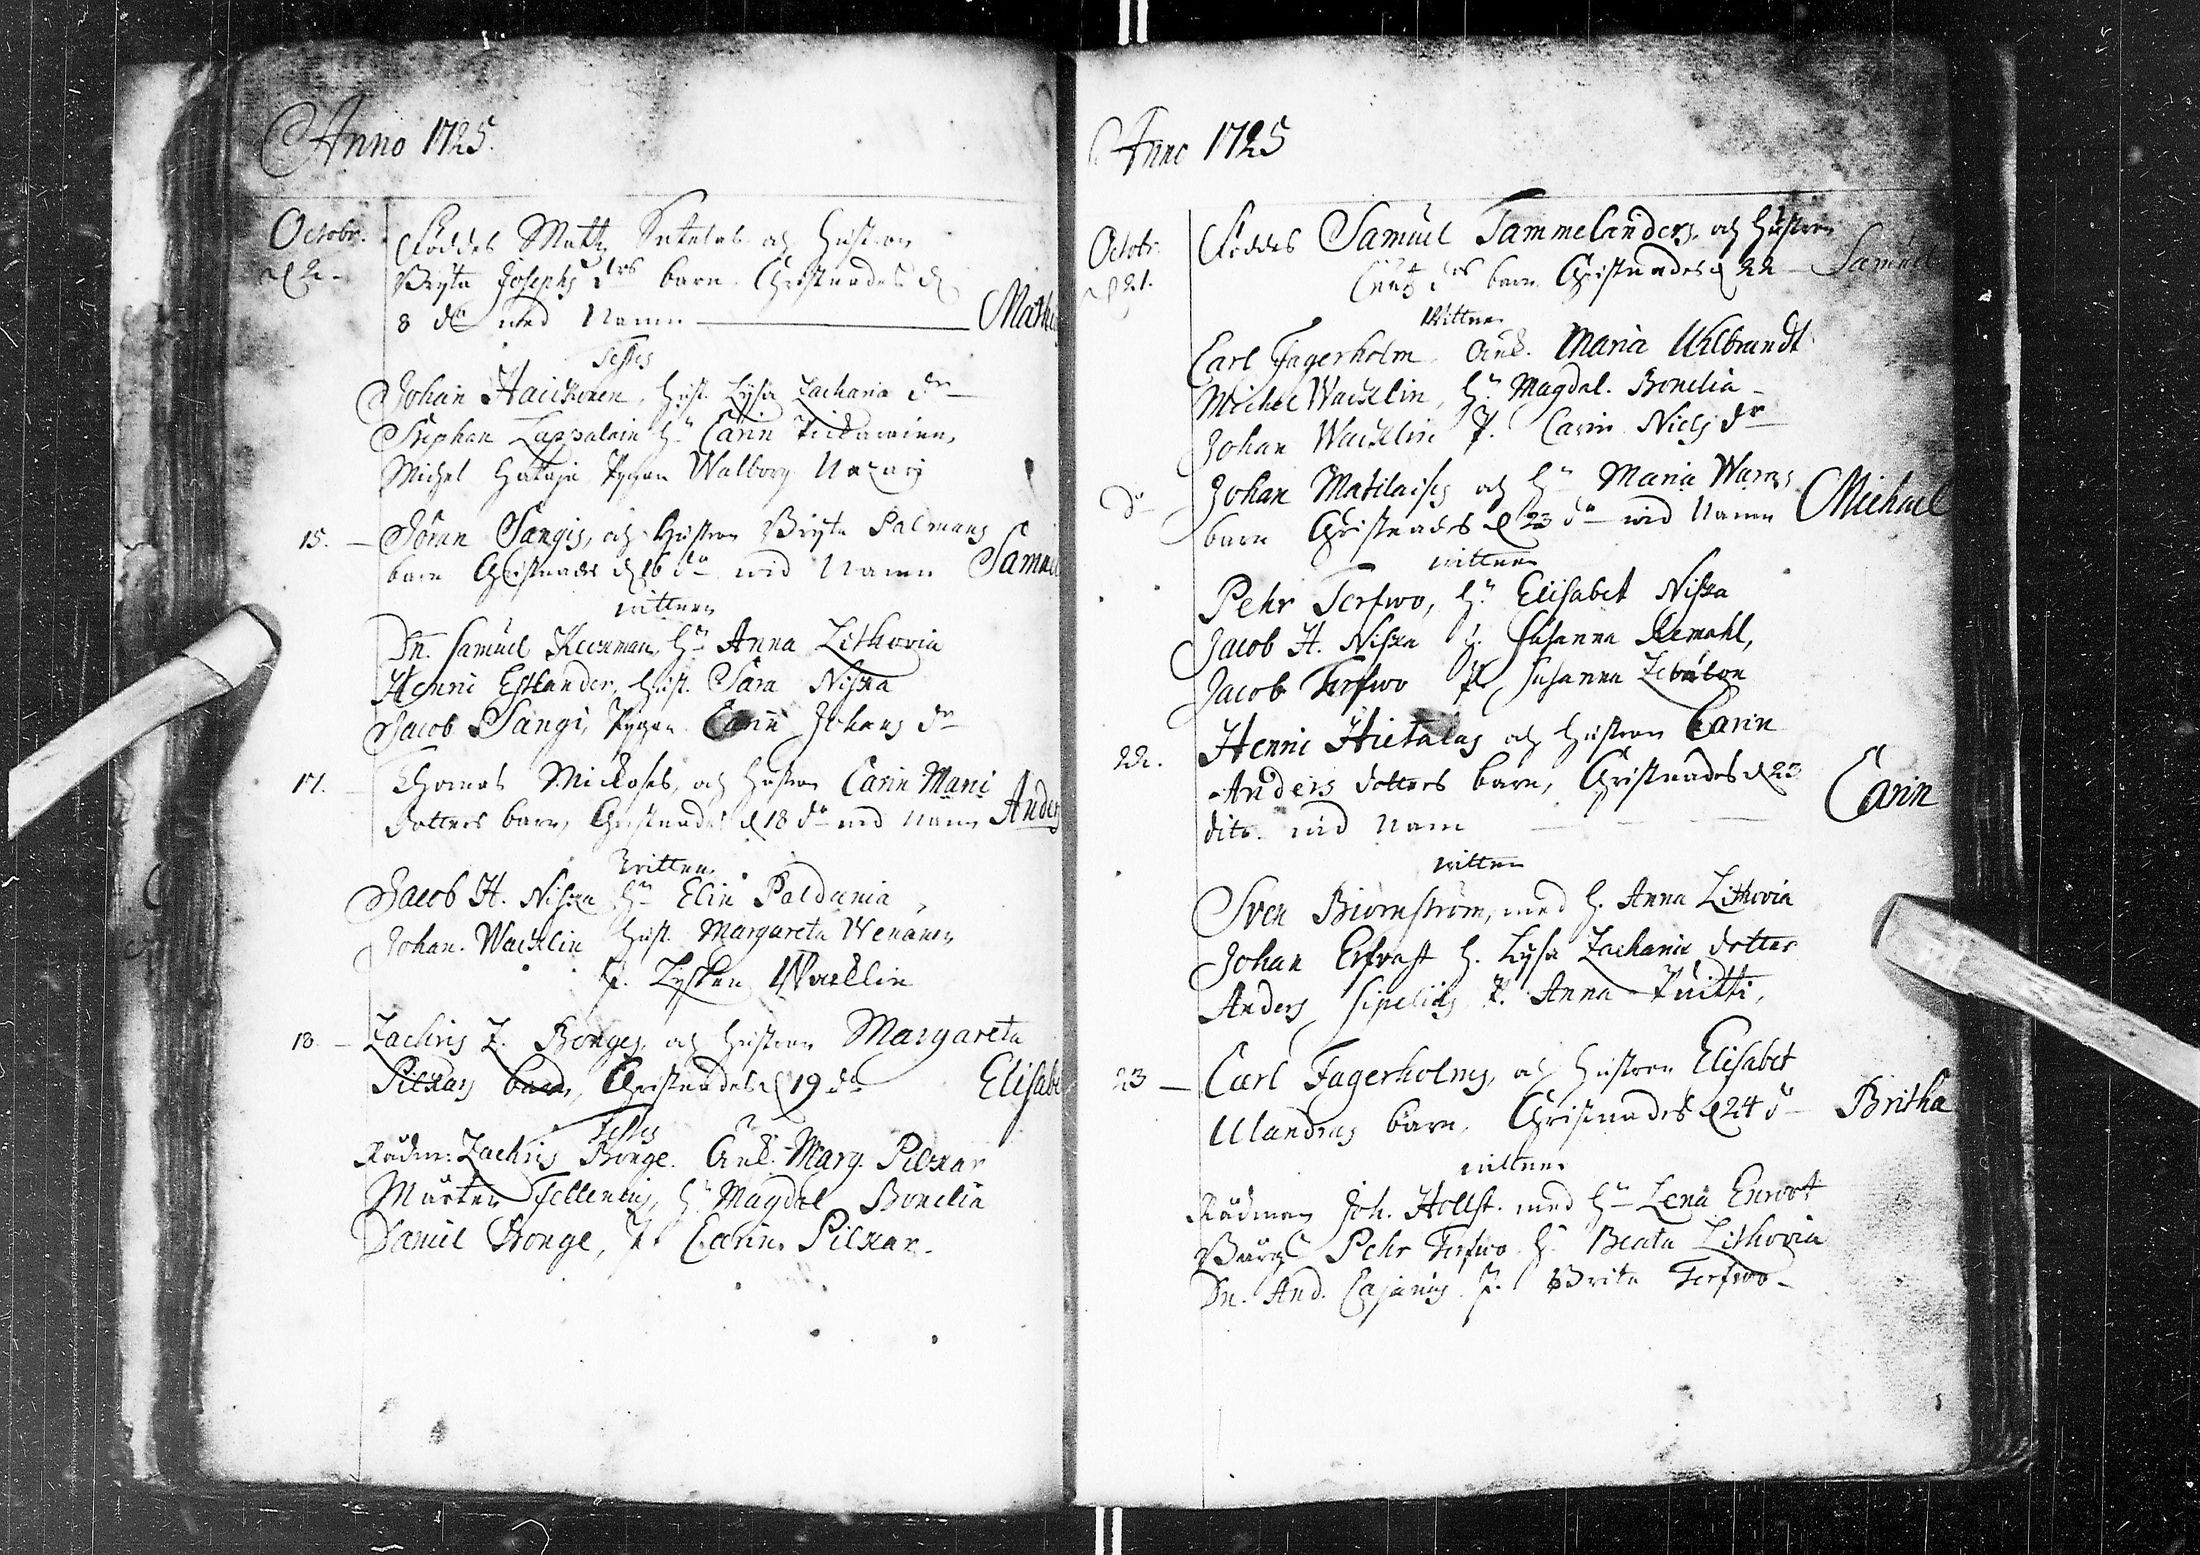 Anno 1725.
Octobr.
Föddes Matts och Hustron
Bryta Josephs drs barn Christnades d
8 do med Namn Mathi
Testes
Johan Haickonen, Hust. Lysa Zacharia dr
Stephan Lappalain h. Carin
Michel Hataja Pygan Walborg
15. Jöran Sangis, och Hustron Bryta Palmans
barn Christnades d 16 do wid Namn Samue
wittnen
Dn. Samuel Keckman, Hu Anna Lithovia
Henric Estlander, Hust. Sara Niska
Jacob Sangi, Pygan Carin Johans dr
17. Thomas och Hustron Carin
dotters barn, Christnades d 18 do wid Namn Anders
Wittnen
Jacob H. Niska Hu Elin Paldania
Johan Wacklin Hust. Margareta
P. Lysken Wacklin
18. Zachris Z. Bonges, och Hustron Margareta
Pilkars barn, Christnades d 19 do Elisabe
Testes
Rådm: Zachris Bonge. Ank. Marg. Pilkar
Mårten Fellenius, Hu Magdal Bonelia
Daniel Bonge, P. Carin Pilkar.
Anno 1725
Octobr.
d 21.
Föddes Samuel Tammelanders och Hustron
drs barn Christnades d 22 Samuel
Wittnen
Carl Fagerholm. Ank. Maria Wilbrandt
Michel Wacklin, Hu Magdal. Bonelia
Johan Wacklin P. Carin Niels dr
do Johan Matilaises och Hu Maria
barn Christnades d 23 do wid Namn Michael
wittnen
Pehr Terfwo, Hu Elisabet Niska
Jacob H. Niska h. Susanna Remahl,
Jacob Terfwo P. Susanna Zebulon
22. Henric Hietalas och Hustron Carin
Anders dotters barn, Christnades d 23
dito wid Namn Carin
witten
Sven Biörnström, med h. Anna Lithovia
Johan Erfvast h. Lysa Zacharie dotter
Anders P. Anna
23 Carl Fagerholms, och Hustron Elisabet
Ulandrus barn, Christnades d 24 do Britha
wittnen
Rådman Joh. Hollst. med Hu Lena
Pehr Terfwo Hu Beata Lithovia
Dn. And. Cajanus P. Brita Terfwo